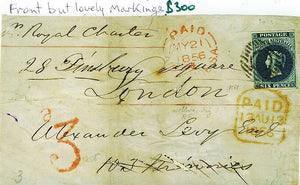 Front but lovely Markings $300
pr Royal Charter
28 Finsbury Square
London
Alexander Levy Esqr
PAID
MY 21
1856
S.A.
POSTAGE
SIX PENCE
PAID
13 AU 13
3
3